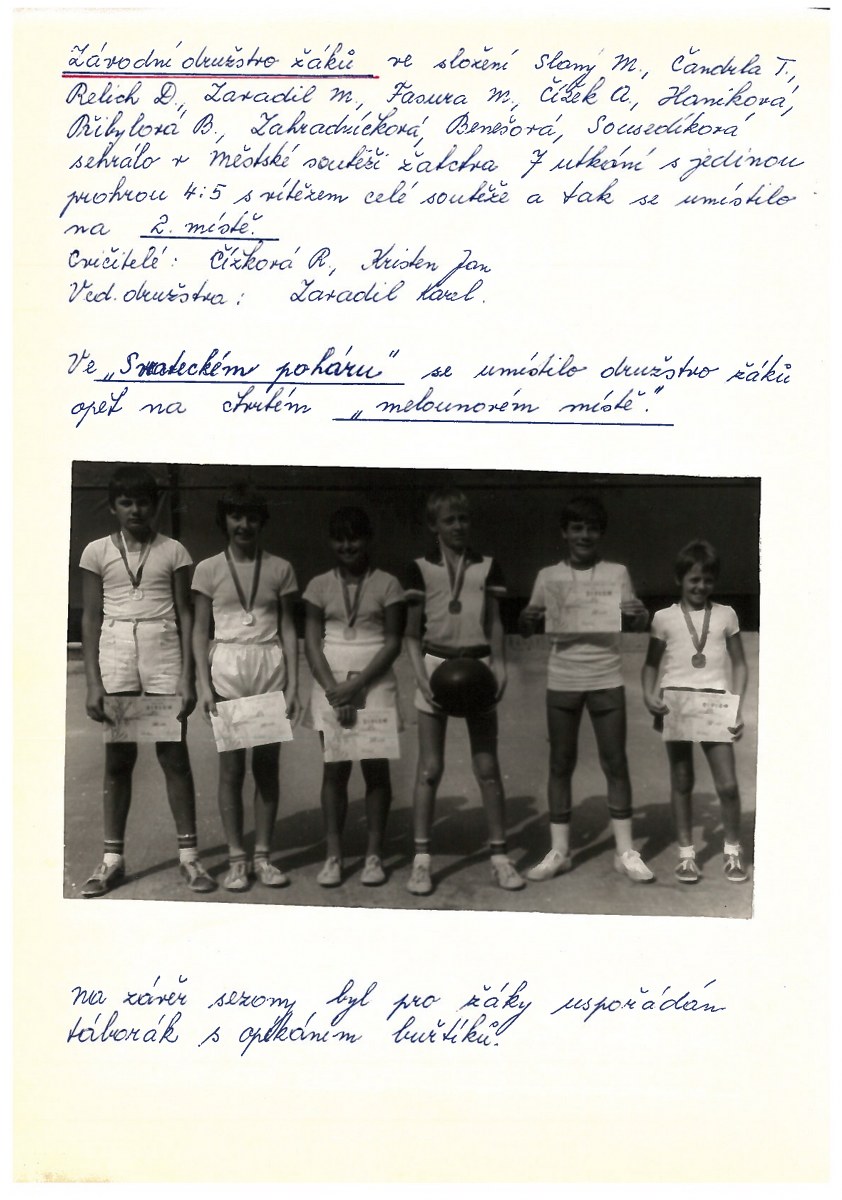 Závodní družstvo žáků ve složení Slaný M., Čandrla T.,
Relich D., Zavadil M., Fasura M., Čížek A., Haniková,
Přibylová B., Zahradníčková, Benešová, Sousedíková
sehrálo v Městské soutěži žactva 7 utkání s jedinou
prohrou 4:5 s vítězem celé soutěže a tak se umístilo
na 2. místě.
Cvičitelé: Čížková R., Kristen Jan
Ved. družstva: Zavadil Karel.
Ve „Svrateckém poháru" se umístilo družstvo žáků
opět na čtvrtém „melounovém místě."
DIPLOM
DIPLOM
DIPLOM
DIPLOM
Na závěr sezony byl pro žáky uspořádán
táborák s opékáním buřtíků.